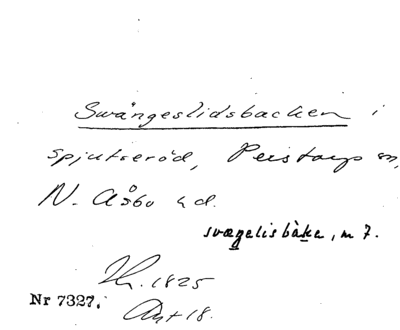 Swängeslidsbacken i
Spjutseröd, Perstorps sn,
N. Åsbo hd.
svægelisbàka, m 7.
Th. 1825
Nr 7327. Akt 18.